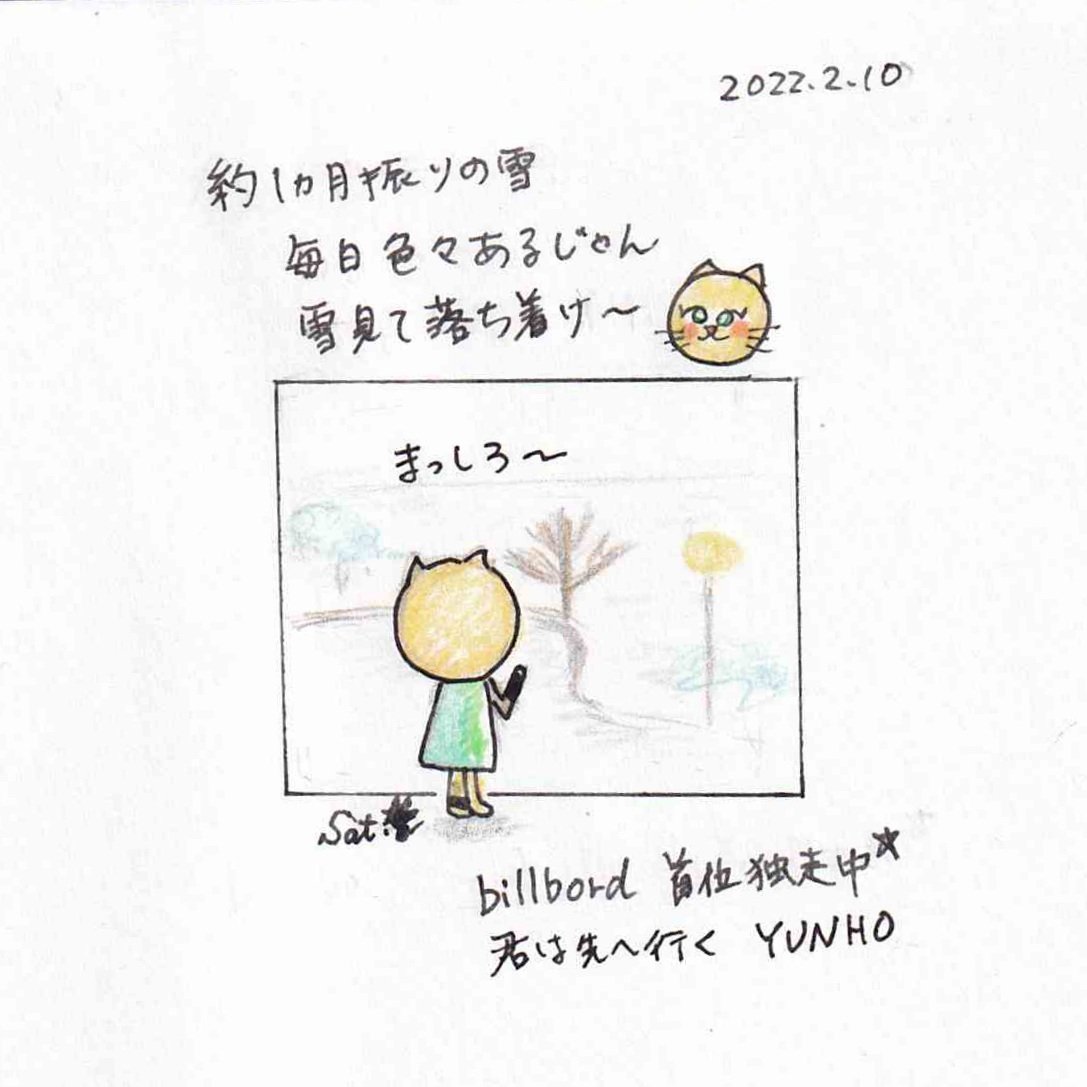 2022.2.10
約1カ月振りの雪
毎日色々あるじゃん
雪見て落ち着け～
まっしろ～
Sat
billbord 首位独走中☆
君は先へ行く YUNHO